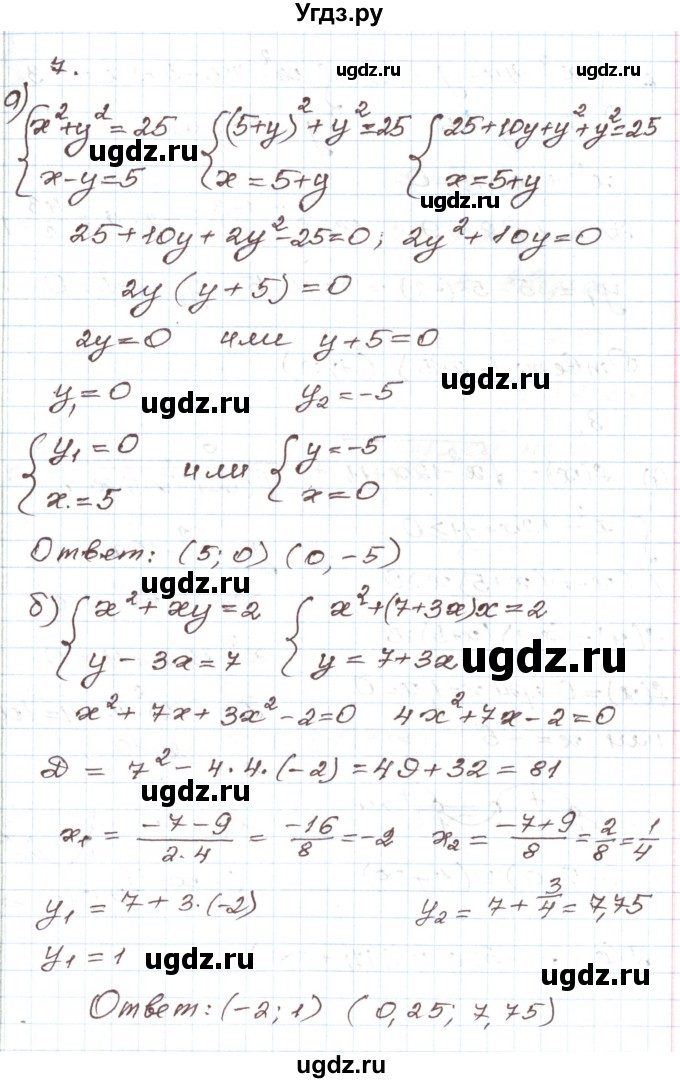 Угдз.ру
7.
ugdz.ru ugdz.ru
а) { x² + y² = 25 { (5+y)² + y² = 25 { 25+10y+y²+y²=25
x - y = 5 { x = 5+y { x = 5+y
ugdz.ru ugdz.ru
25+10y+2y²-25=0; 2y²+10y=0
2y (y+5) = 0
2y=0 или y+5=0
ugdz.ru
y₁=0 y₂=-5
ugdz.ru
{ y₁ = 0 или { y=-5
x = 5 x=0
Ответ: (5; 0) (0, -5)
ugdz.ru
б) { x² + xy = 2 { x²+(7+3x)x = 2
y - 3x = 7 y = 7+3x
ugdz.ru
x² + 7x + 3x² - 2 = 0 4x²+7x-2=0
D = 7² - 4·4·(-2) = 49+32 = 81
ugdz.ru
x₁ = (-7-9)/(2·4) = -16/8 = -2 x₂ = (-7+9)/8 = 2/8 = 1/4
y₁ = 7+3·(-2) y₂ = 7+3/4 = 7,75
y₁ = 1
ugdz.ru ugdz.ru
Ответ: (-2; 1) (0,25; 7,75)
ugdz.ru